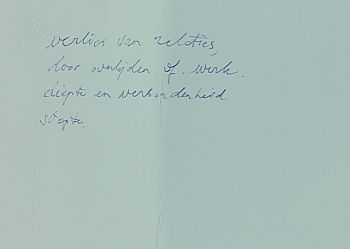 verlies van relaties,
door overlijden of werk.
diepte en verbondenheid
stopte.